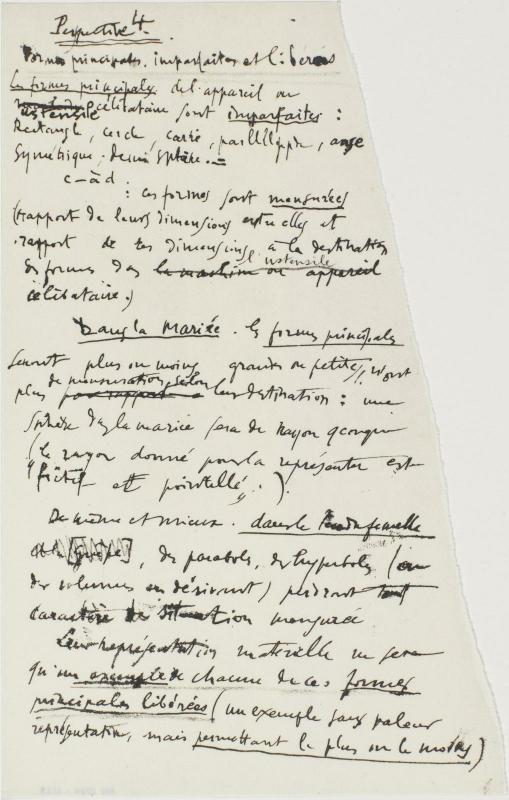 Perspective 4.
Formes principales. imparfaites et libérées
Les formes principales de l'appareil ou
ustensile célibataire sont imparfaites :
Rectangle, cercle, carré, parallélépp., anse
Symétrique, demi sphère. =
c-à-d :
: ces formes sont mensurées
(rapport de leurs dimensions entre elles et
rapport de ces dimensions à la destination
l'ustensile
des formes dans la machine ou appareil
célibataire.)
Dans la Mariée. les formes principales
seront plus ou moins grandes ou petites, n'ont
de mensuration, selon
plus par rapport à leur destination : une
sphère dans la mariée sera de rayon qconque
(le rayon donné pour la représenter est
"fictif et pointillé".).
De même et mieux. dans le Pendu femelle
et la guêpe, des paraboles, des hyperboles (ou
des volumes en dérivant) perdront tout
caractère de situation mensurée
Leur Représentation matérielle ne sera
qu'un exemple de chacune de ces formes
principales libérées (un exemple sans valeur
représentative, mais permettant le plus ou le moins)